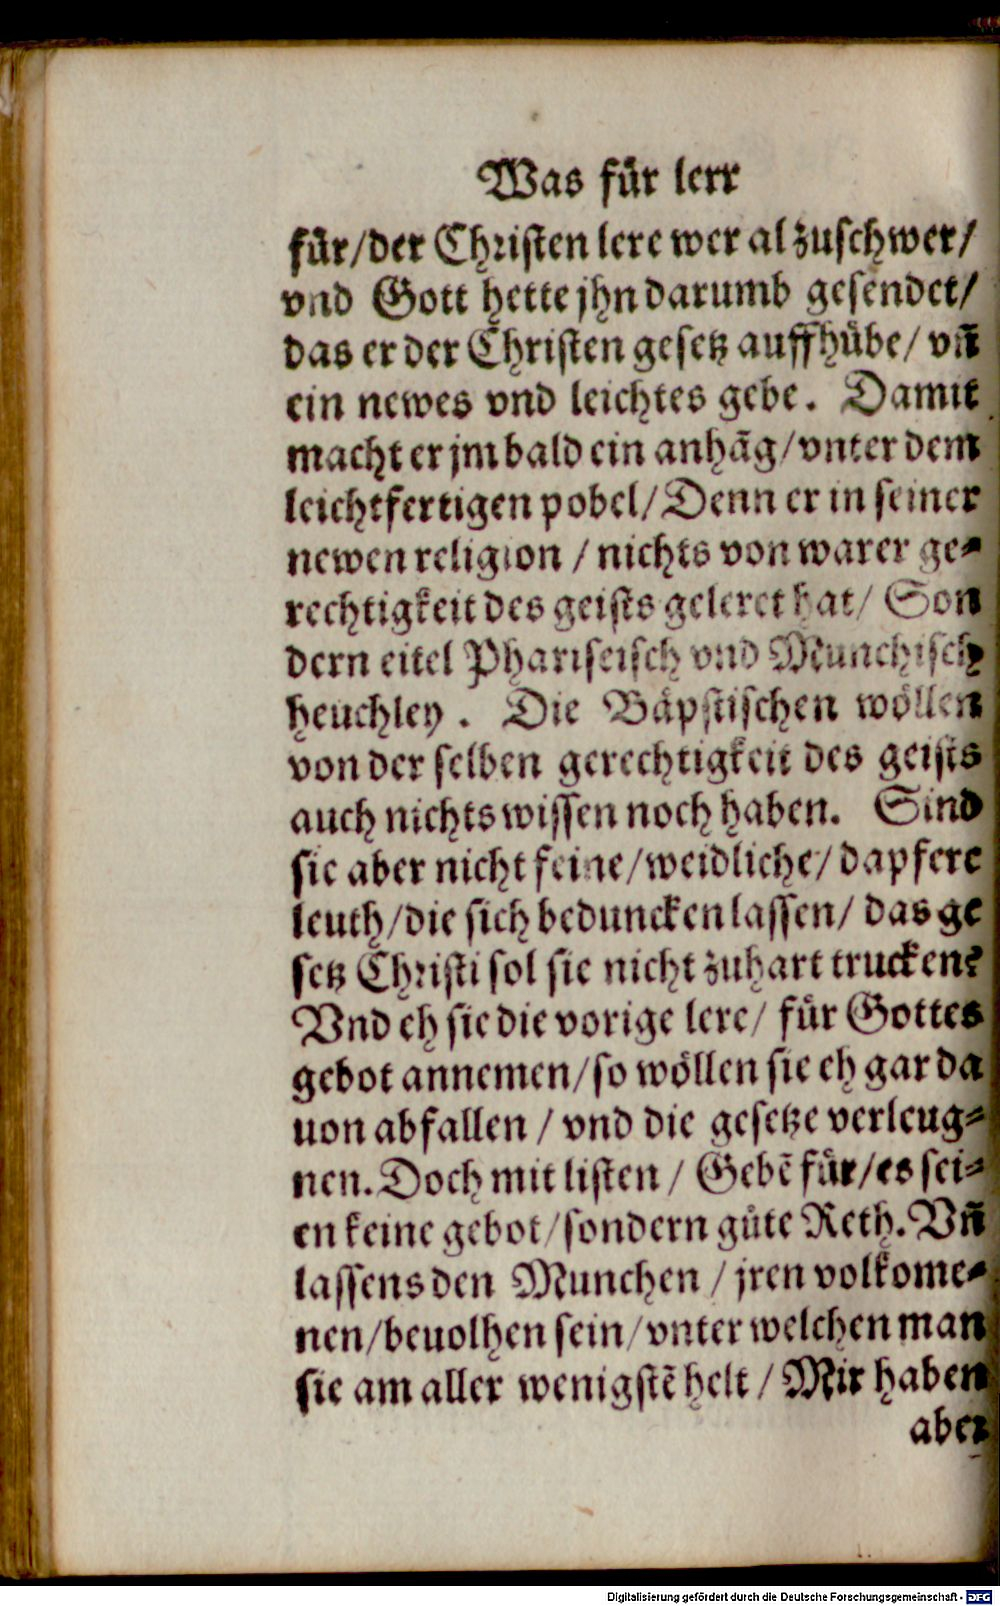 Was für lerr
für/der Christen lere wer al zuschwer/
vnd Gott hette jhn darumb gesendet/
das er der Christen gesetz auffhübe/ vñ
ein newes vnd leichtes gebe. Damit
macht er jm bald ein anhãg/vnter dem
leichtfertigen pobel/Denn er in seiner
newen religion / nichts von warer ge⸗
rechtigkeit des geists geleret hat/ Son
dern eitel Phariseisch vnd Munchisch
heuchley . Die Bäpstischen wöllen
von der selben gerechtigkeit des geists
auch nichts wissen noch haben. Sind
sie aber nicht feine/weidliche/dapfere
leuth/die sich beduncken lassen/ das ge
setz Christi sol sie nicht zuhart trucken?
Vnd eh sie die vorige lere/ für Gottes
gebot annemen/so wöllen sie eh gar da
uon abfallen / vnd die gesetze verleug⸗
nen. Doch mit listen / Gebẽ für/es sei⸗
en keine gebot/sondern güte Reth. Vñ
lassens den Munchen / jren volkome⸗
nen/beuolhen sein/vnter welchen man
sie am aller wenigstẽ helt / Mir haben
aber
Digitalisierung gefördert durch die Deutsche Forschungsgemeinschaft - DFG